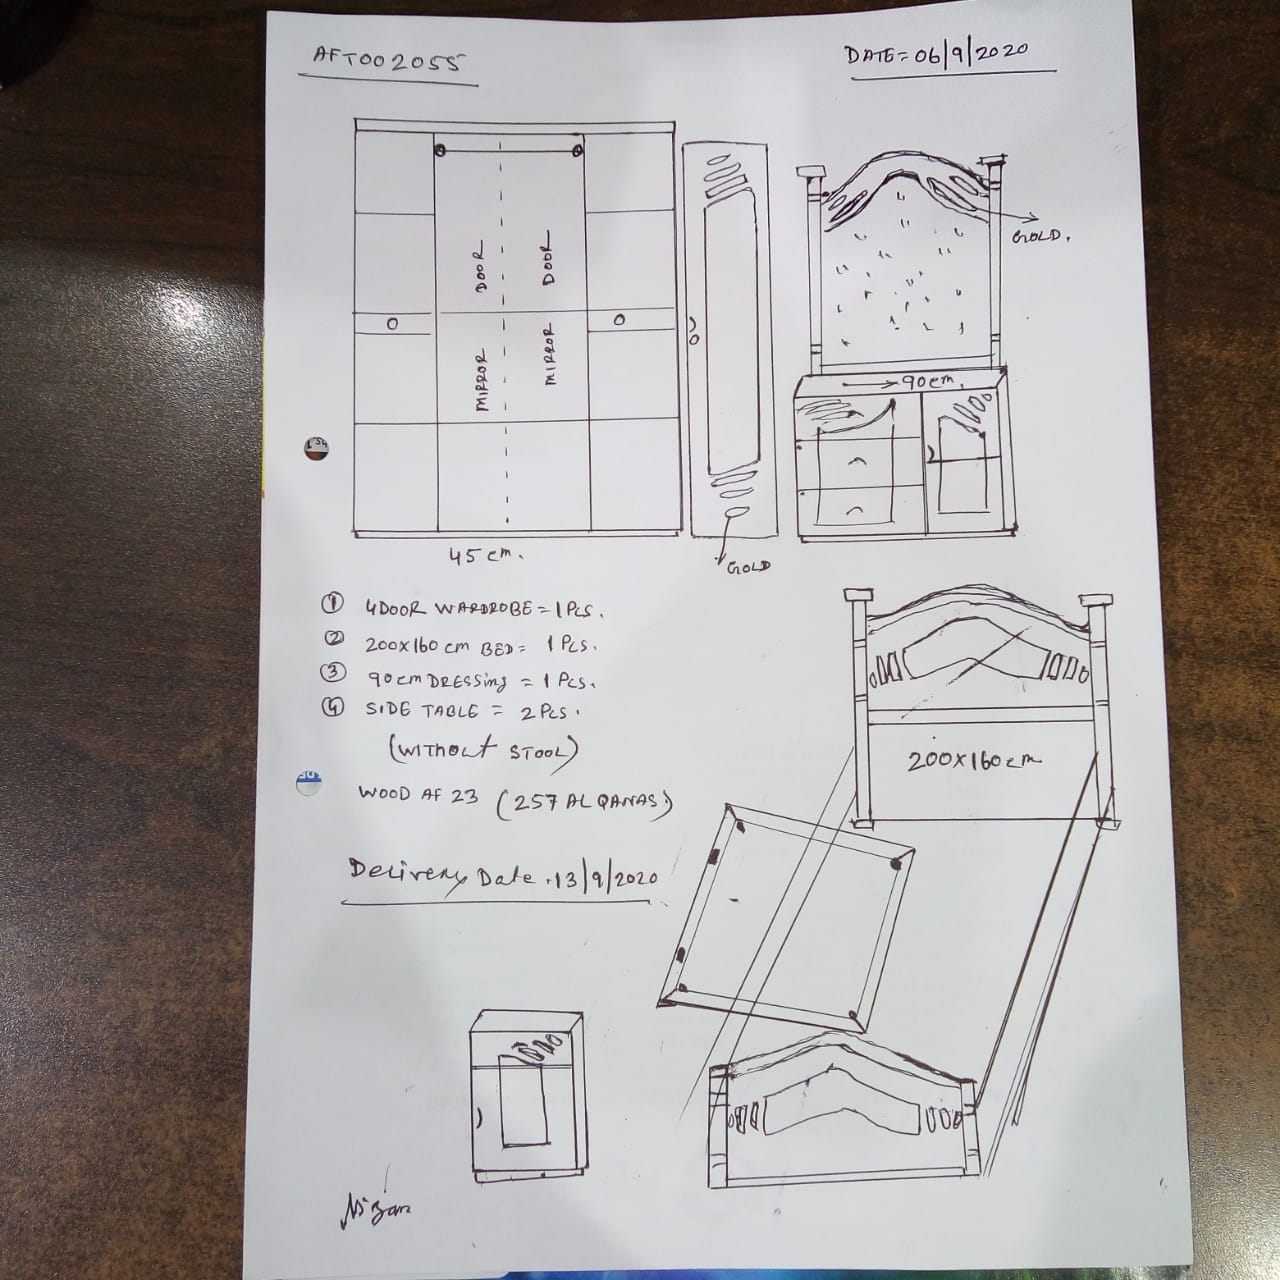 AFT002055
DATE=06/9/2020
DOOR
DOOR
MIRROR
MIRROR
GOLD.
90cm.
45cm.
GOLD
① 4DOOR WARDROBE=1Pcs.
② 200x160cm BED= 1Pcs.
③ 90cm DRESSing = 1Pcs.
④ SIDE TABLE = 2Pcs.
(WITHOUT STOOL)
200x160cm
WOOD AF 23 (257 AL QANAS)
Delivery Date.13/9/2020
Nizam